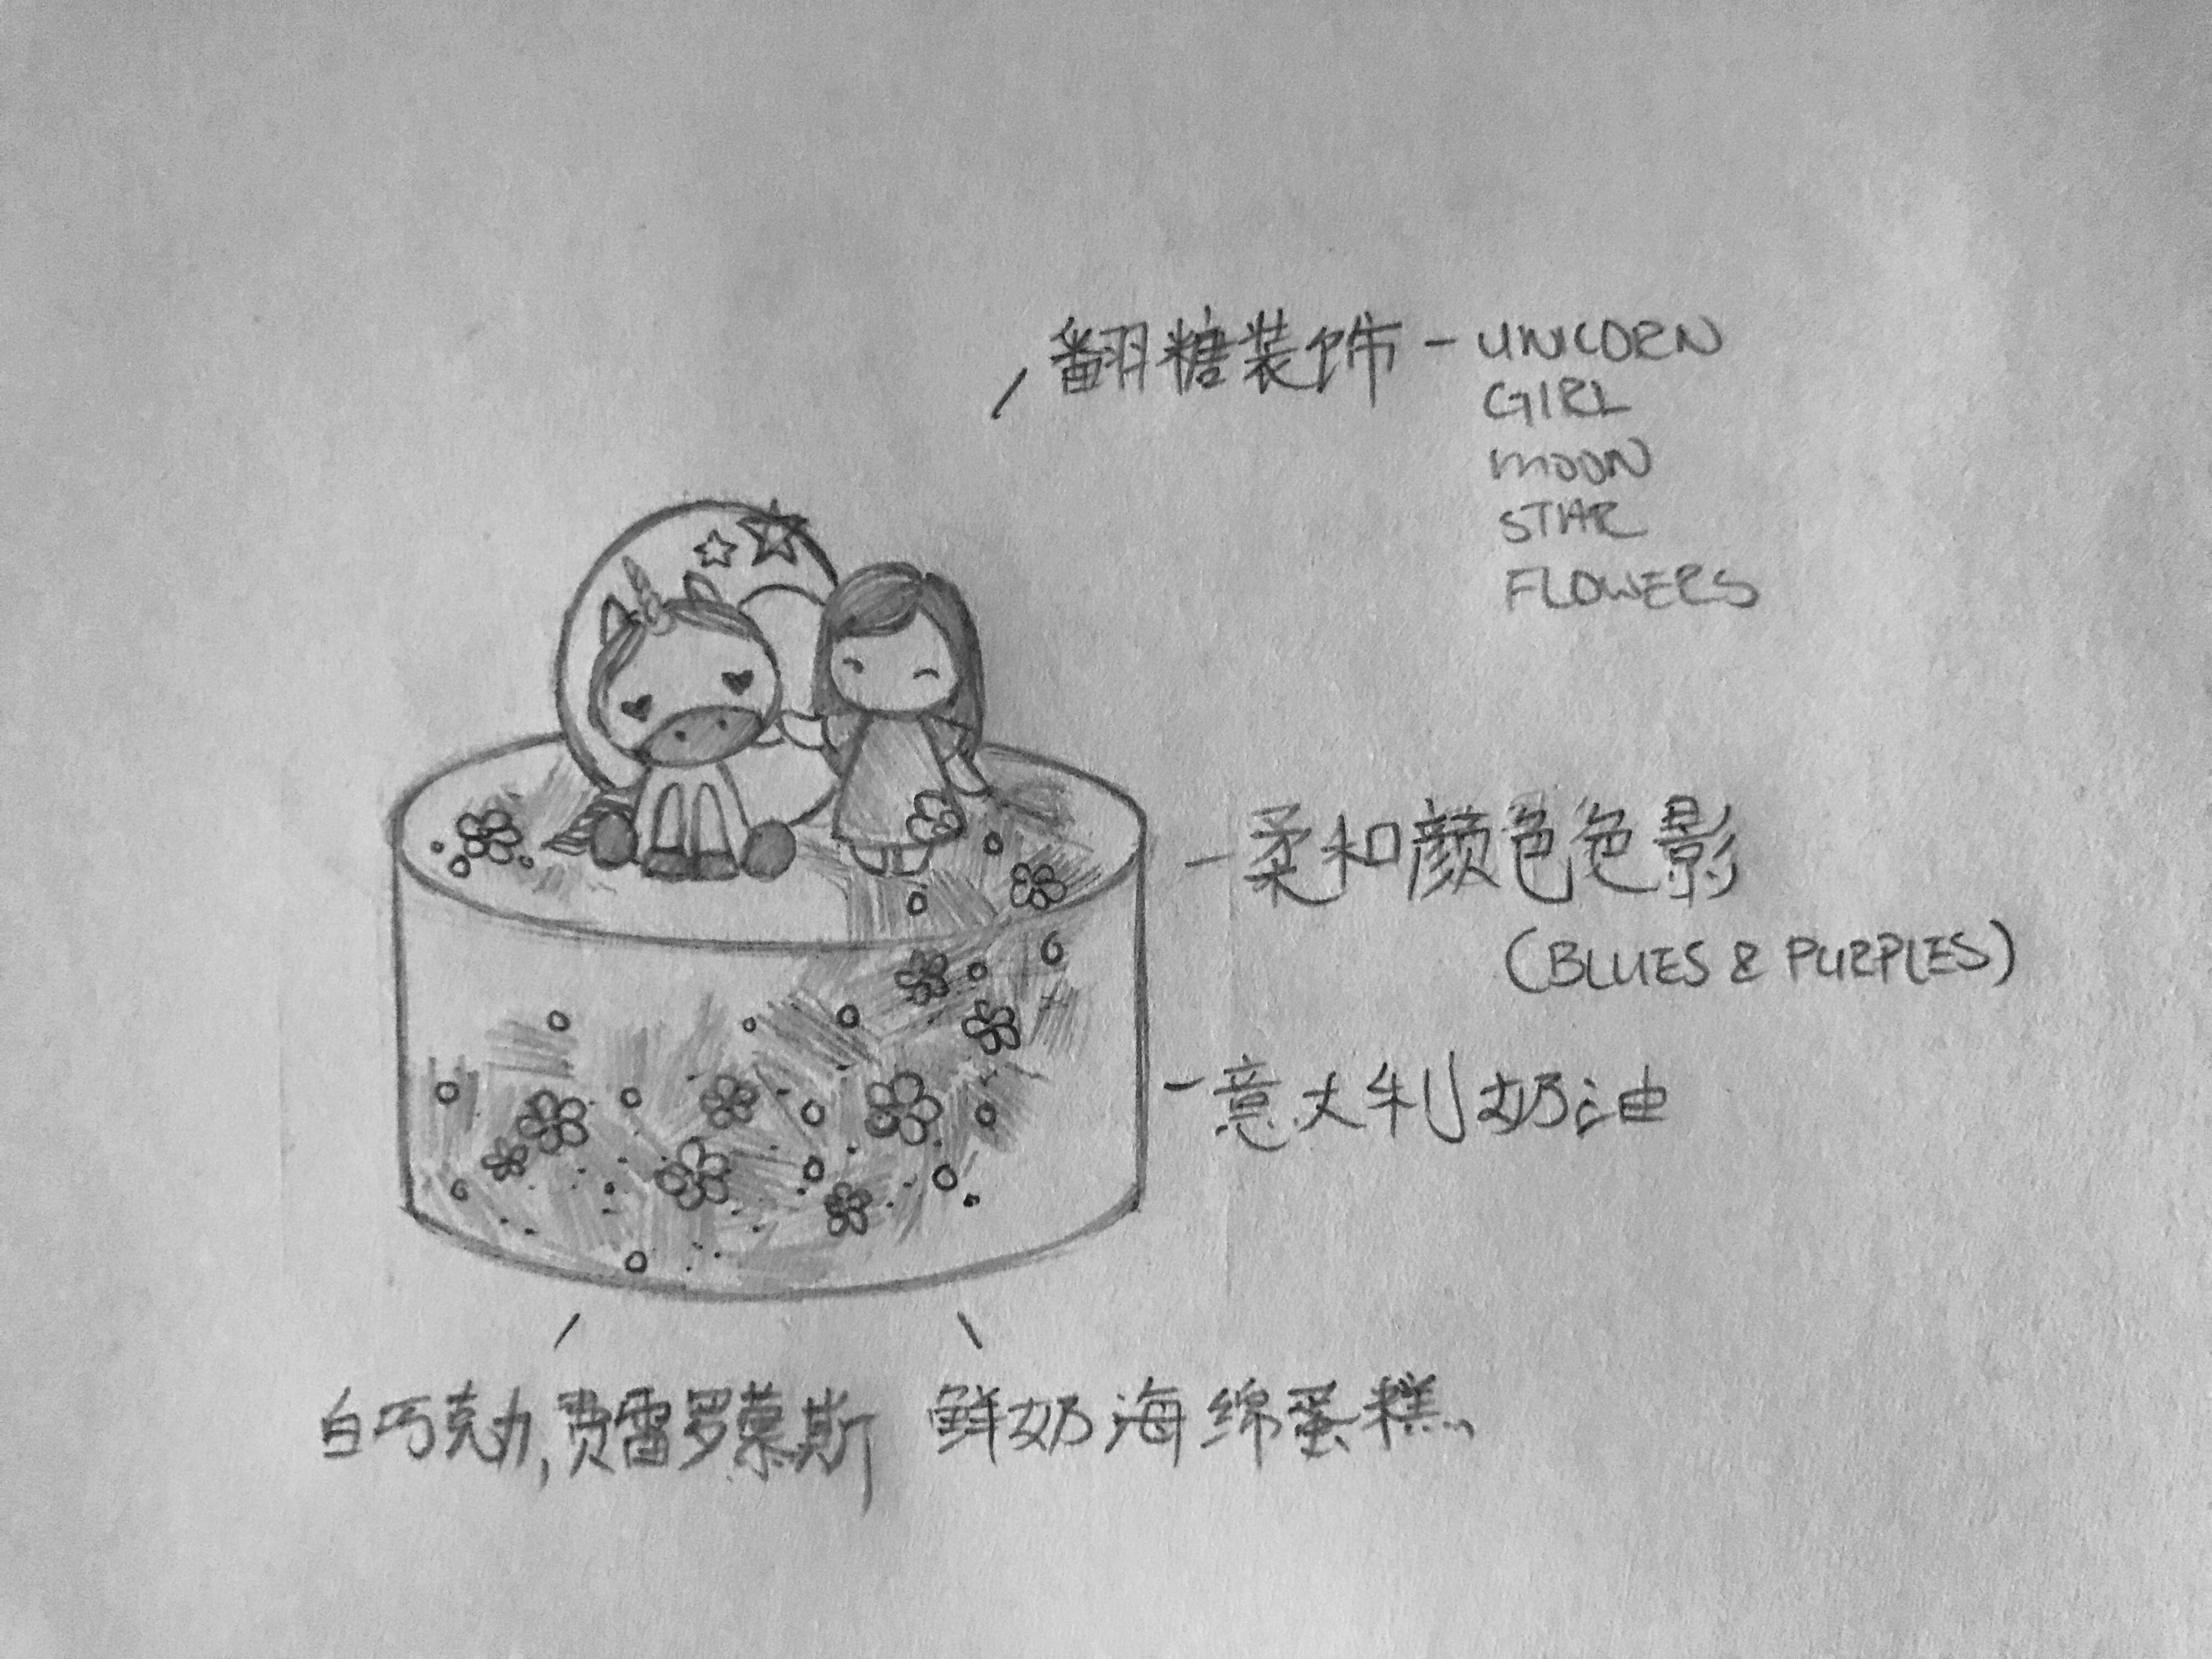 翻糖装饰 - UNICORN
GIRL
MOON
STAR
FLOWERS
- 柔和颜色色影
(BLUES & PURPLES)
- 意大利奶油
白巧克力, 费雷罗慕斯
鲜奶海绵蛋糕